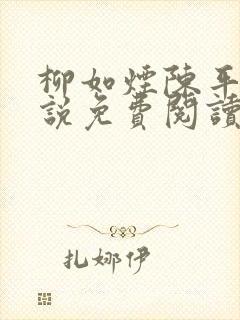 柳如煙陳平
說免費閱讀
扎娜伊